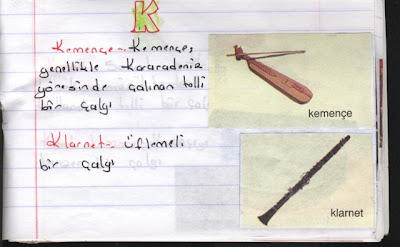 K
Kemençe→ Kemençe,
genellikle Karadeniz
yöresinde çalınan telli
bir çalgı
kemençe
Klarnet→ üflemeli
bir çalgı
klarnet